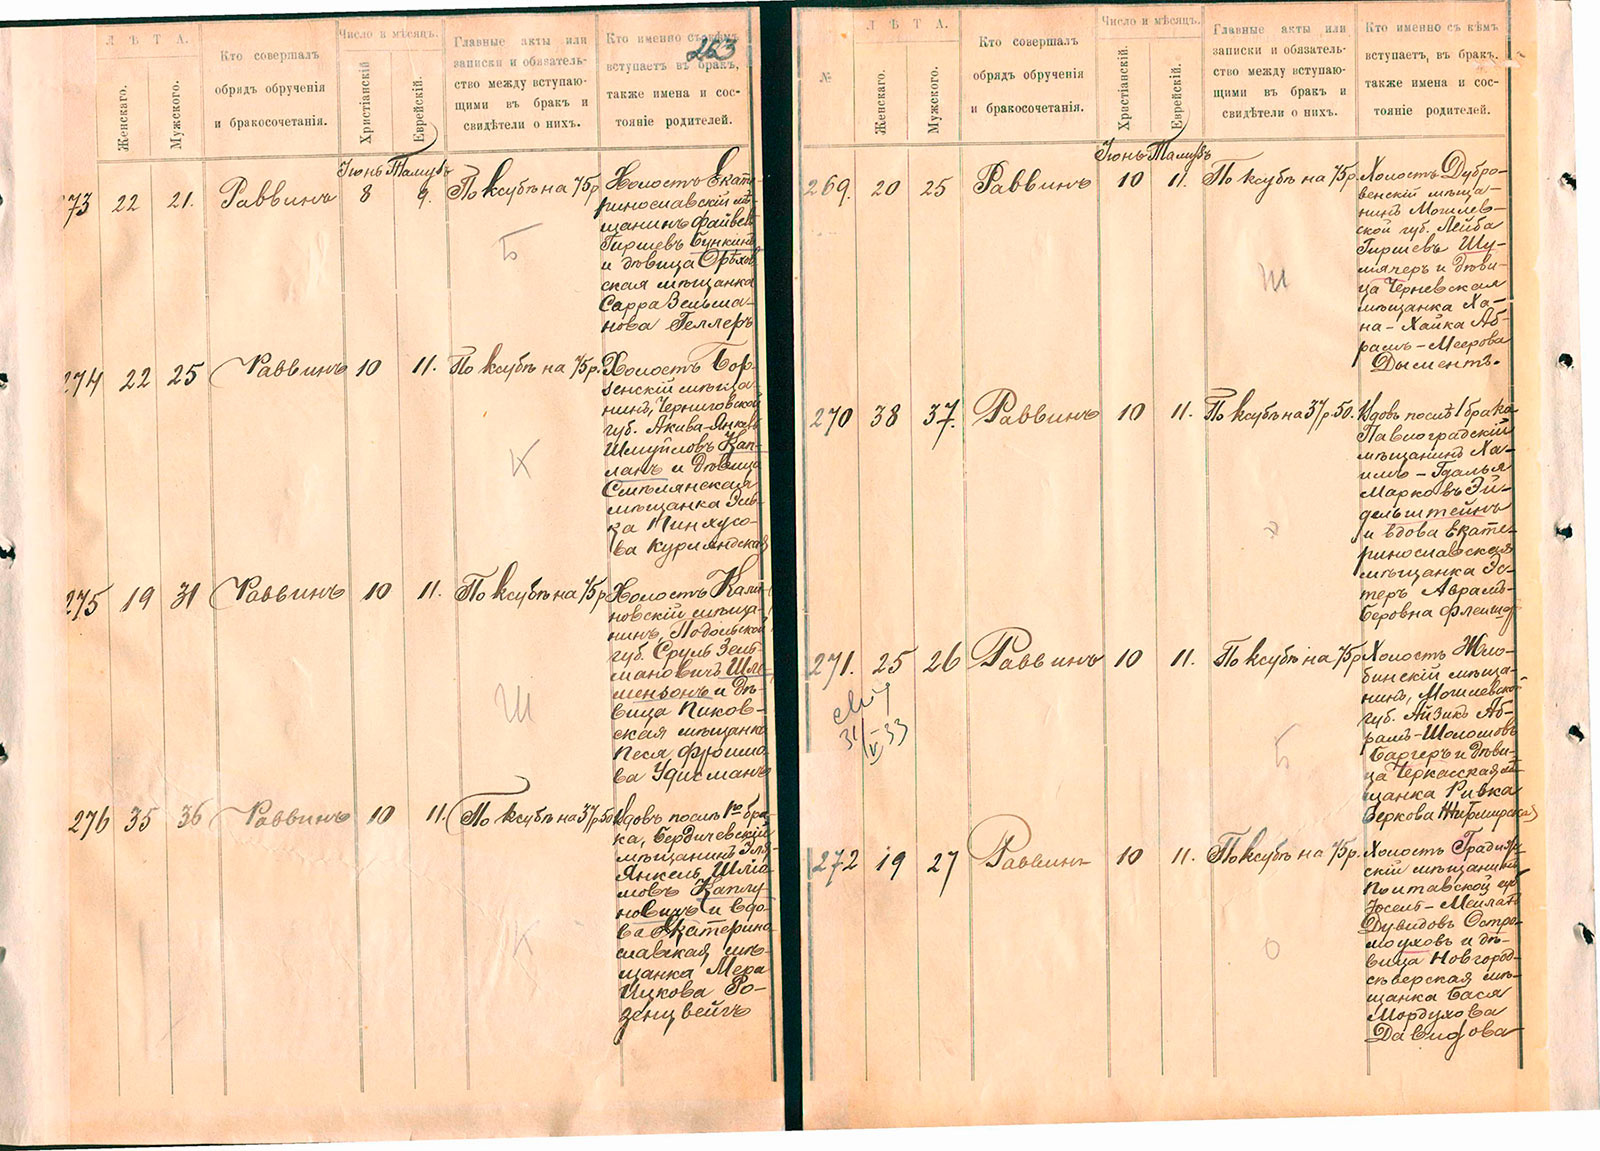 263
Л Ѣ Т А.
Женскаго.
Мужского.
Кто совершалъ
обрядъ обрученія
и бракосочетанія.
Число и мѣсяцъ.
Христіанскій
Еврейскій.
Главные акты или
записки и обязатель-
ство между вступаю-
щими въ бракъ и
свидѣтели о нихъ.
Кто именно съ кѣмъ
вступаетъ въ бракъ,
также имена и сос-
тояніе родителей.
Іюнь Тамузъ
273 22 21. Раввинъ 8 9. По ксубѣ на 75 р.
Холостъ Екате-
ринославскій мѣ-
щанинъ Файвел
Гиршевъ Бункинъ
и дѣвица Орѣхов
ская мѣщанка
Сарра Зельма-
нова Геллеръ
Б
274 22 25 Раввинъ 10 11. По ксубѣ на 75 р.
Холостъ Бор-
зенскій мѣща-
нинъ, Черниговской
губ. Акива-Янкель
Шмуйловъ Кап-
ланъ и дѣвица
Смѣлянская
мѣщанка Рив-
ка Пинхусо-
ва Курляндская
К
275 19 31 Раввинъ 10 11. По ксубѣ на 75 р.
Холостъ Калю
новскій мѣща-
нинъ, Подольской
губ. Сруль Зель-
мановичъ Шле-
мензонъ и дѣ-
вица Пиков-
ская мѣщанка
Песя Фроимо
ва Удисманъ
Ш
276 35 36 Раввинъ 10 11. По ксубѣ на 37 р 50
Вдовъ послѣ 1го бра
ка, Бердичевскій
мѣщанинъ Эля
Янкель Шлio
мовъ Каплу
новичъ и вдо-
ва Екатерино
славская мѣ-
щанка Мера
Ицкова Ро-
зенцвейгъ
К
№
Л Ѣ Т А.
Женскаго.
Мужского.
Кто совершалъ
обрядъ обрученія
и бракосочетанія.
Число и мѣсяцъ.
Христіанскій
Еврейскій.
Главные акты или
записки и обязатель-
ство между вступаю-
щими въ бракъ и
свидѣтели о нихъ.
Кто именно съ кѣмъ
вступаетъ, въ бракъ.
также имена и сос-
тояніе родителей.
Іюнь Тамузъ
269. 20 25 Раввинъ 10 11. По ксубѣ на 75 р.
Холостъ Дубро-
венскій мѣща-
нинъ Могилев-
ской губ. Лейба
Гиршевъ Шу-
мячеръ и дѣви-
ца Черневская
мѣщанка Ха-
на-Хайка Аб-
рамъ-Меерова
Дыментъ.
Ш
270 38 37. Раввинъ 10 11. По ксубѣ на 37 р. 50.
Вдовъ послѣ 1 брака
Павлоградскій
мѣщанинъ Ха-
имъ-Гдалья
Марковъ Эй-
дельштейнъ
и вдова Екате-
ринославская
мѣщанка Эс-
теръ Аврамъ-
Беровна
э
271. 25 26 Раввинъ 10 11. По ксубѣ на 75 р
Холостъ Жло-
бинскій мѣща-
нинъ, Могилевской
губ. Айзикъ Аб-
рамъ-Шоломовъ
Баргеръ и дѣви-
ца Черкасская мѣ-
щанка Ривка
Беркова Житомирская
31/V 33
Б
272 19 27 Раввинъ 10 11. По ксубѣ на 75 р.
Холостъ Градиж-
скій мѣщанинъ
Полтавской губ
Іосель-Мейлахъ
Дувидовъ Остро-
моуховъ и дѣ-
вица Новгород-
сѣверская мѣ-
щанка Бася
Мордухова
Давидова
О